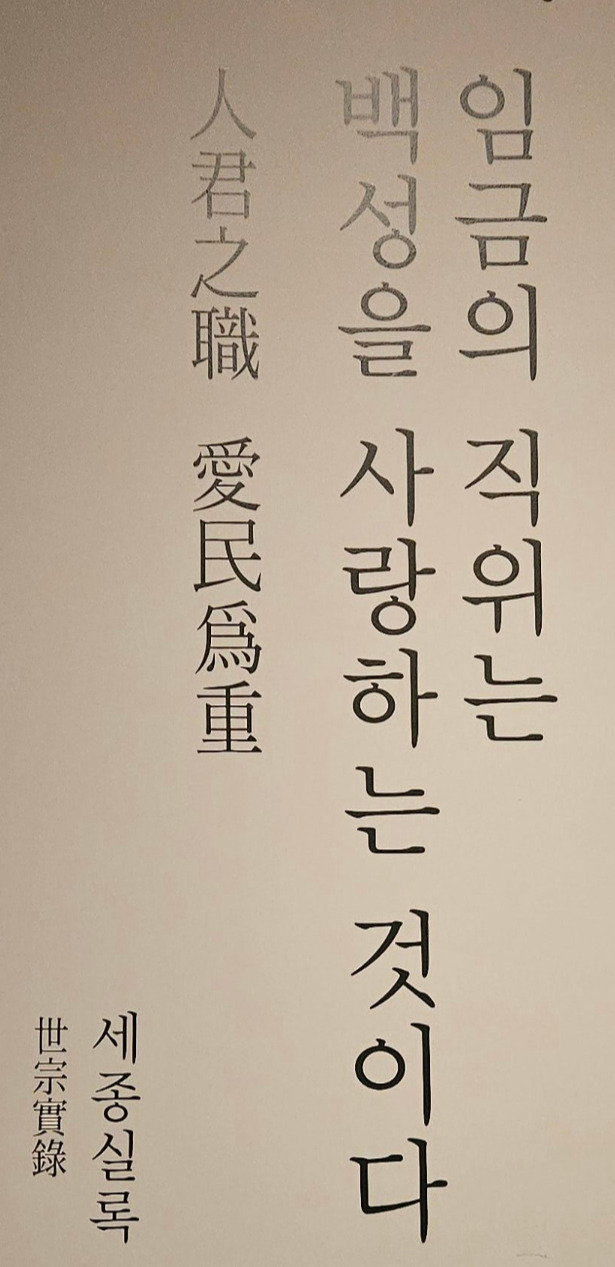 임금의 직위는
백성을 사랑하는 것이다
人君之職 愛民爲重
세종실록
世宗實錄